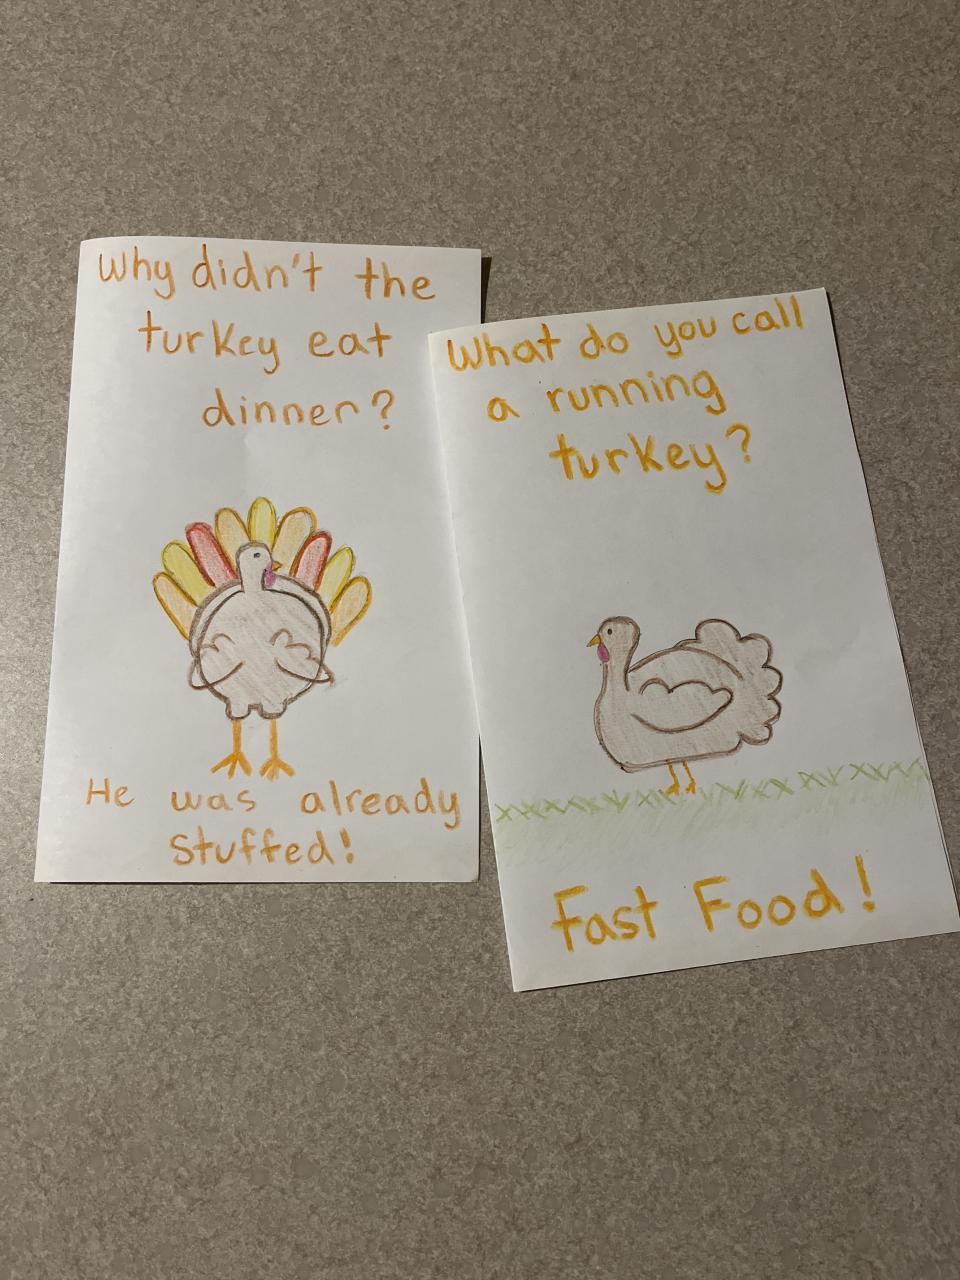 Why didn't the
turkey eat
dinner?
He was already
stuffed!
What do you call
a running
turkey?
Fast Food!